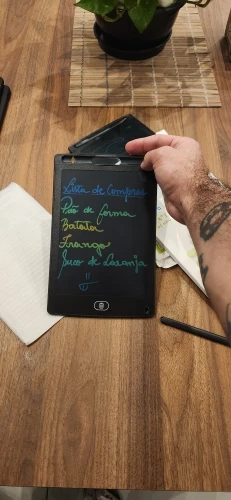 Lista de Compras
Pão de forma
Batata
Frango
Suco de Laranja